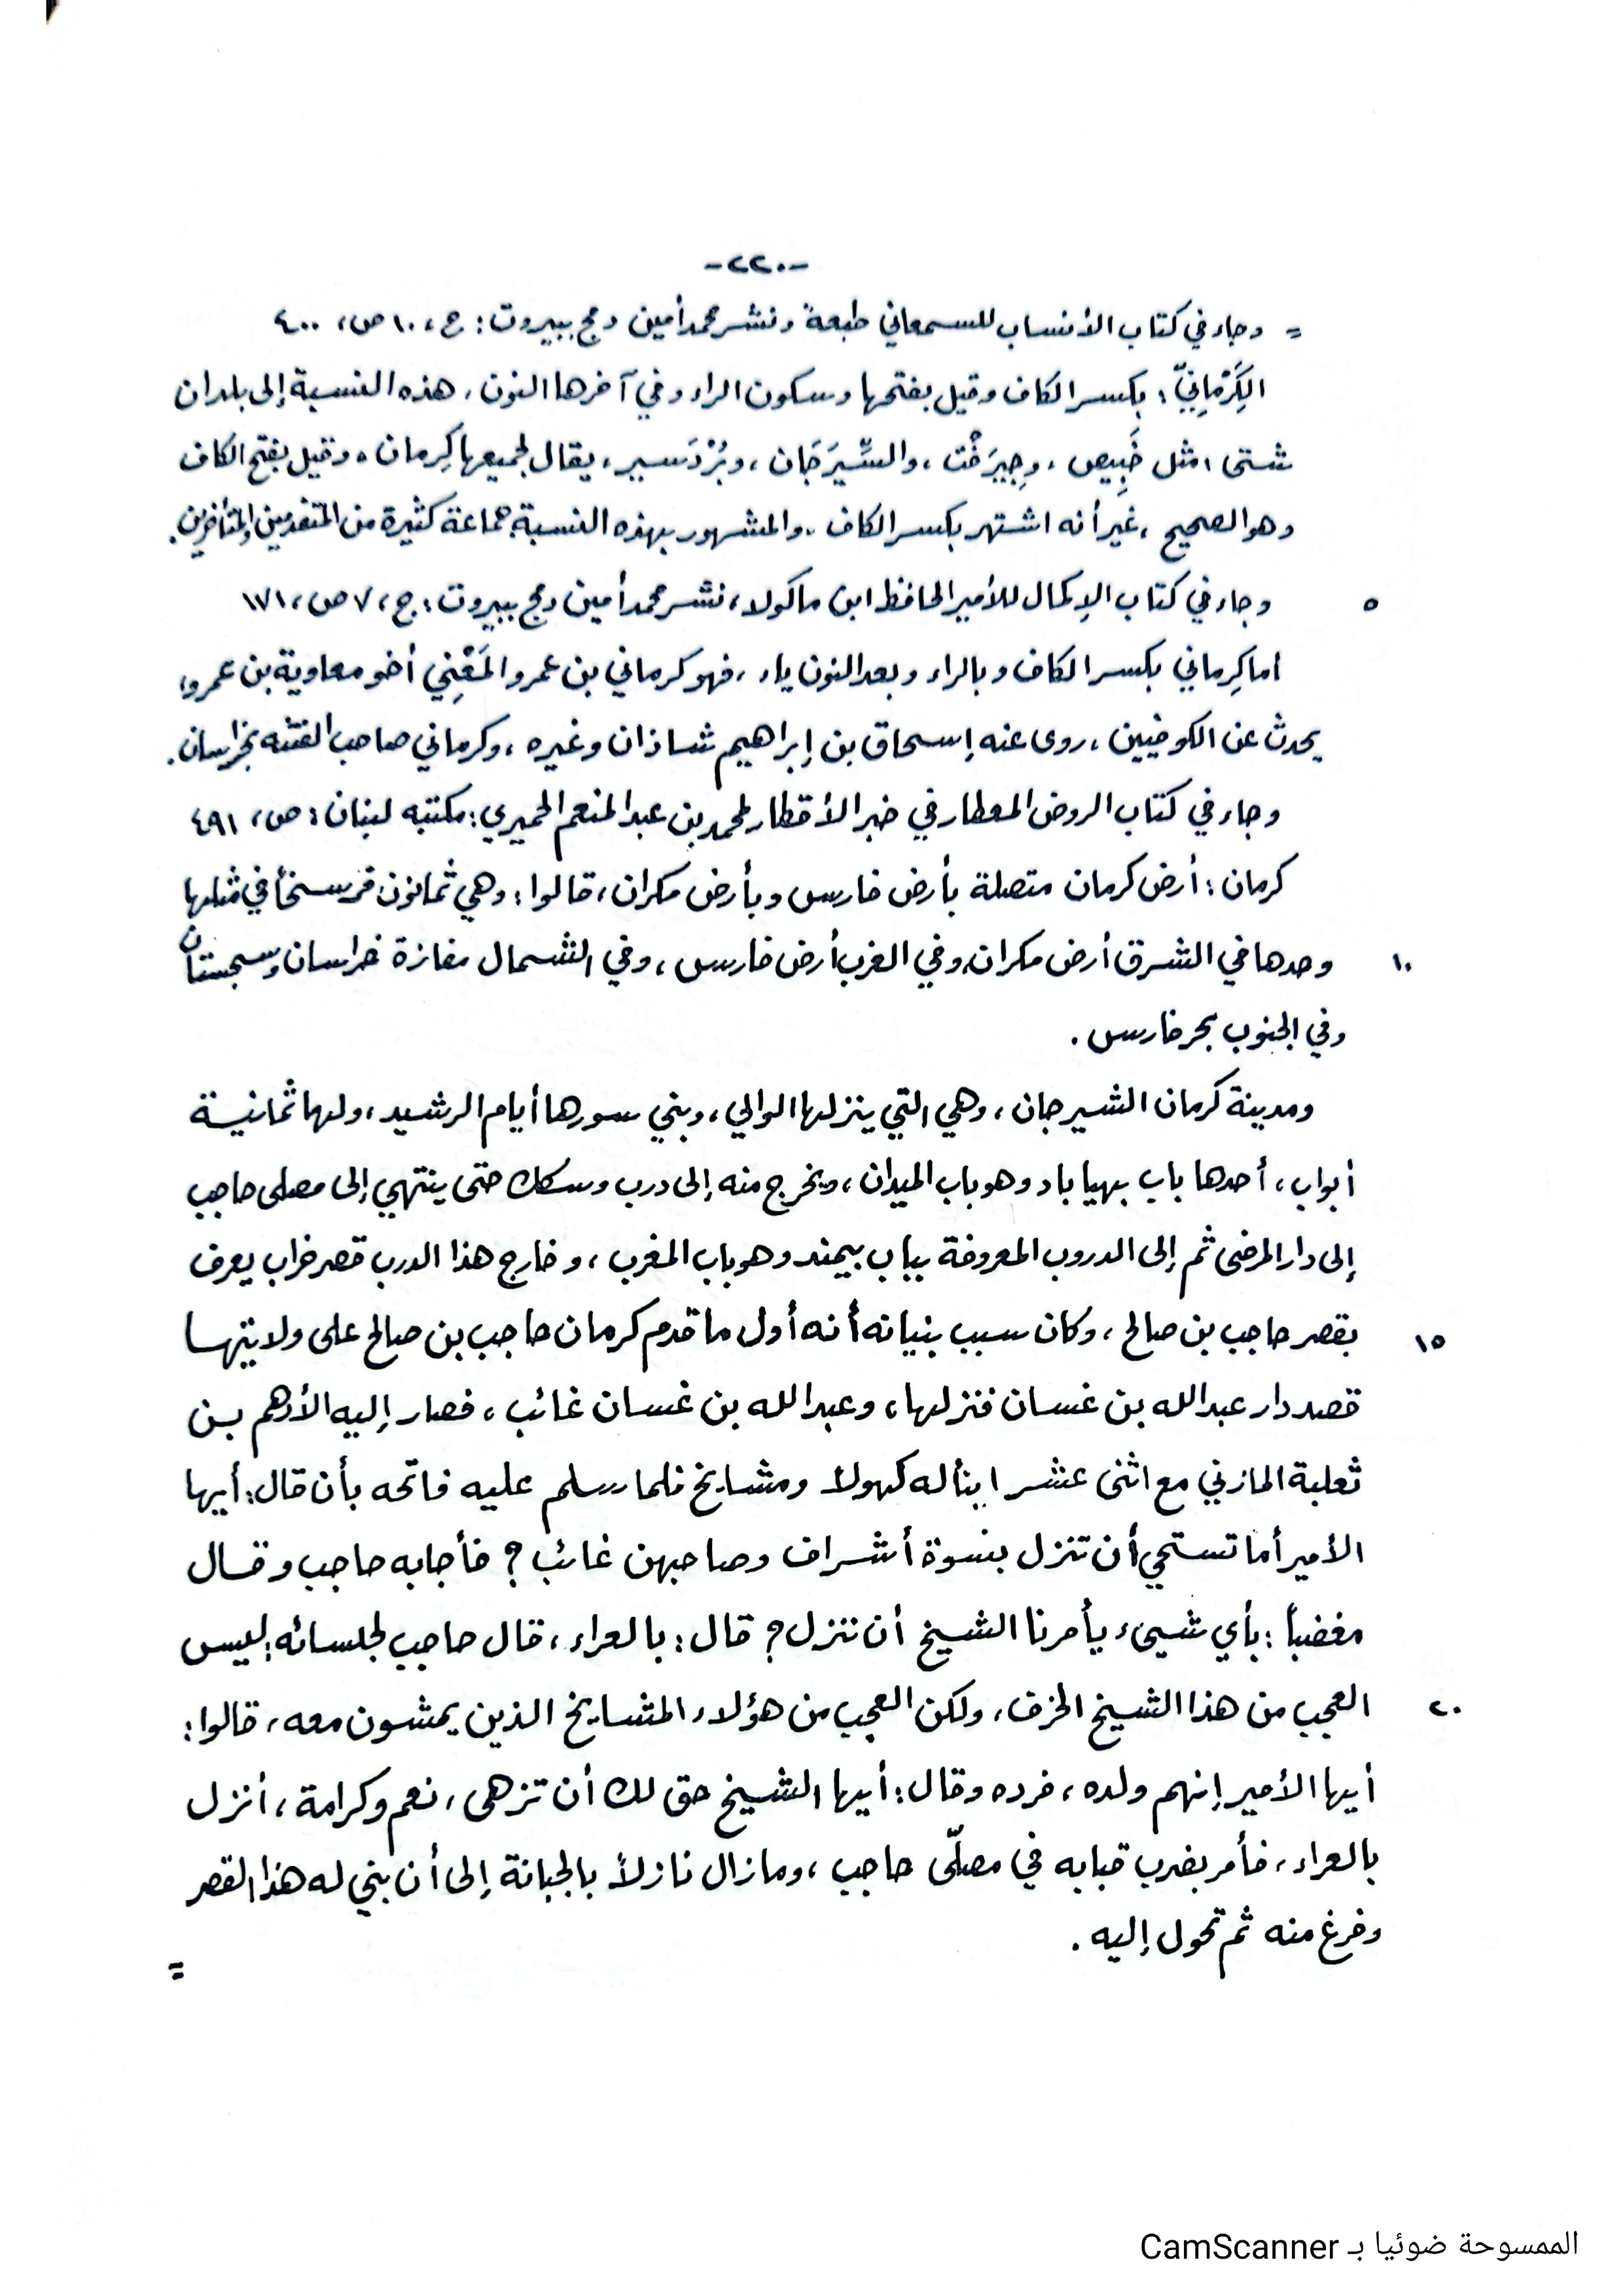 -٢٢٠-
= وجاء في كتاب الأنساب للسمعاني طبعة ونشر محمد أمين دمج ببيروت: ج، ١٠ ص، ٤٠٠
الكَِرْمَانِيّ: بكسر الكاف وقيل بفتحها وسكون الراء وفي آخرها النون، هذه النسبة إلى بلدان
شتى، مثل خَبِيص، وجِيرَفْت، والسِّيرَجَان، وبُرْدَسير، يقال لجميعها كِرمان، وقيل بفتح الكاف
وهو الصحيح، غير أنه اشتهر بكسر الكاف، والمشهور بهذه النسبة جماعة كثيرة من المتقدمين والمتأخرين.
٥ وجاء في كتاب الإكمال للأمير الحافظ ابن ماكولا، نشر محمد أمين دمج ببيروت: ج، ٧ ص، ١٧١
اما كِرماني بكسر الكاف وبالراء وبعد النون ياء، فهو كرماني بن عمرو المَعْنِي أخو معاوية بن عمرو،
يحدث عن الكوفيين، روى عنه إسحاق بن إبراهيم شاذان وغيره، وكرماني صاحب الفتنه بخراسان.
وجاء في كتاب الروض المعطار في خبر الأقطار لمحمد بن عبد المنعم الحميري: مكتبه لبنان: ص، ٤٩١
كرمان: أرض كرمان متصلة بأرض فارس وبأرض مكران، قالوا: وهي ثمانون فرسخاً في مثلها
١٠ وحدها في الشرق أرض مكران وفي الغرب أرض فارس، وفي الشمال مفازة خراسان وسجستان
وفي الجنوب بحر فارس.
ومدينة كرمان الشيرجان، وهي التي ينزلها الوالي، وبني سورها أيام الرشيد، ولها ثمانية
أبواب، أحدها باب بهيا باد وهو باب الميدان، ويخرج منه إلى درب وسكك حتى ينتهي إلى مصلى حاجب
إلى دار المرضى ثم إلى الدروب المعروفة بباب بيمند وهو باب المغرب، وخارج هذا الدرب قصر خراب يعرف
١٥ بقصر حاجب بن صالح، وكان سبب بنيانه أنه أول ما قدم كرمان حاجب بن صالح على ولايتها
قصد دار عبد الله بن غسان فنزلها، وعبد الله بن غسان غائب، فصار إليه الأدهم بن
ثعلبة المازني مع اثنى عشر ابناً له كهولاً ومشايخ فلما سلم عليه فاتحه بأن قال: أيها
الأمير أما تستحي أن تنزل بنسوة أشراف وصاحبهن غائب؟ فأجابه حاجب وقال
مغضباً: بأي شيىء يأمرنا الشيخ أن ننزل؟ قال: بالعراء، قال حاجب لجلسائه: ليس
٢٠ العجب من هذا الشيخ الخرف، ولكن العجب من هؤلاء المشايخ الذين يمشون معه، قالوا:
أيها الأمير إنهم ولده، فرده وقال: أيها الشيخ حق لك أن تزهى، نعم وكرامة، أنزل
بالعراء، فأمر بضرب قبابه في مصلّى حاجب، وما زال نازلاً بالجبانة إلى أن بني له هذا القصر
وفرغ منه ثم تحول إليه.
=
الممسوحة ضوئيا بـ CamScanner